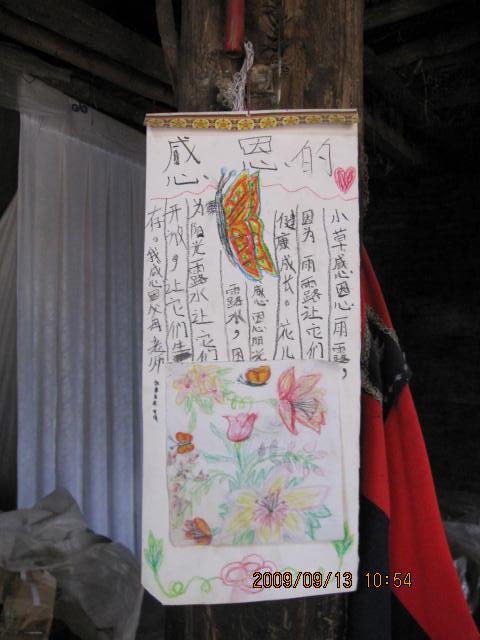 感恩的
小草感恩雨露，
因为雨露让它们
健康成长。花儿
感恩阳光
露水，因
为阳光露水让它们
开放，让它们生
存。我感恩父母老师
2009/09/13 10:54